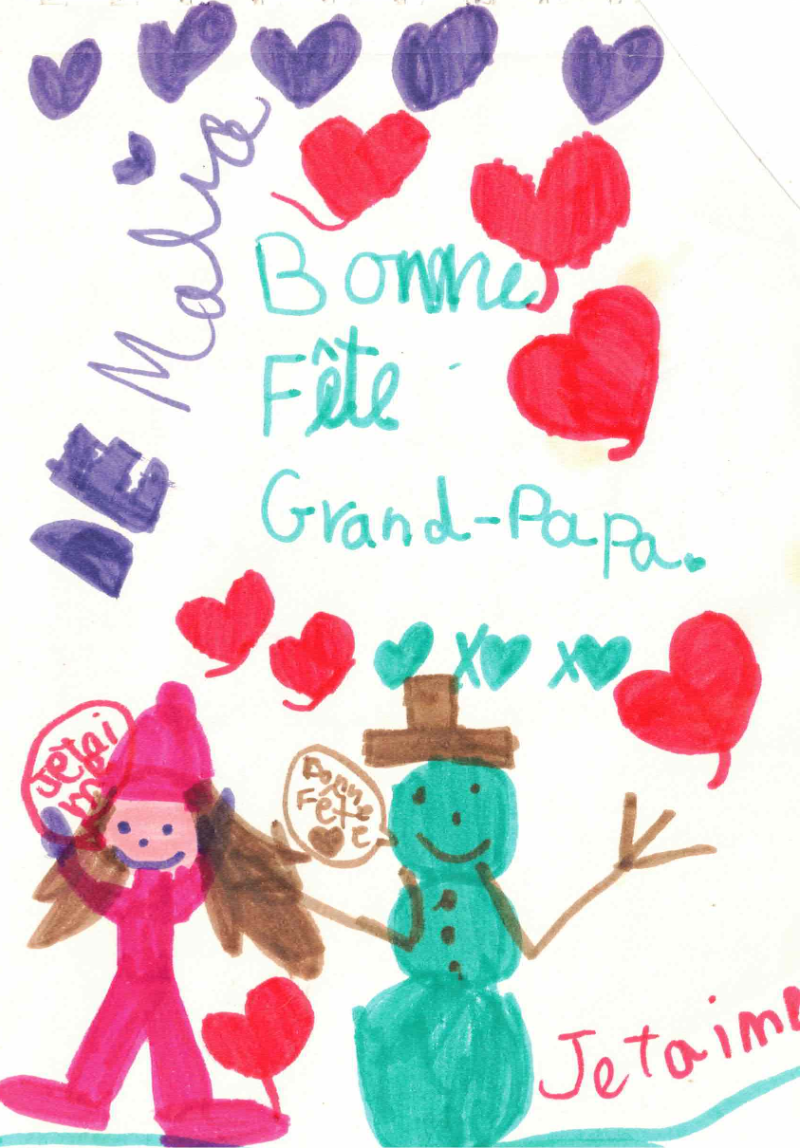 DE Malia
Bonne
Fête
Grand-Papa.
X X
Jetai
m
Bonne
Fête
Jetaim